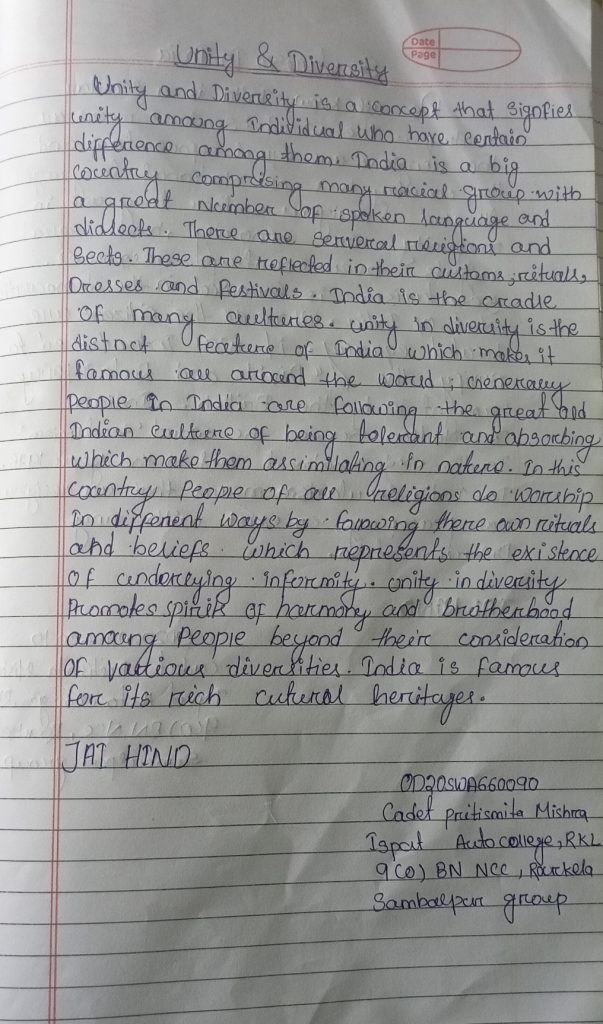 Date
Page
Unity & Diversity
Unity and Diversity is a concept that signfies
unity amoung Individual who have certain
difference among them. India is a big
country comprising many racial group with
a great Number of spoken language and
dialects. There are serveral religions and
Sects. These are reflected in their customs, rituals,
Dresses and festivals. India is the cradle
of many cultures. unity in diversity is the
distnct feature of India which makes it
famous all around the world, Generally
People in India are following the great and
Indian culture of being tolerant and absorbing
which make them assimilating in nature. In this
country People of all religions do worship
In different ways by following there own rituals
and beliefs which represents the existence
of underlying informity. unity in diversity
Promotes spirit of harmony and brotherhood
amoung People beyond their consideration
of vatious diversities. India is famous
for its rich cutural heritages.
JAI HIND
OD20SWA660090
Cadet Pritismita Mishra
Ispat Auto college, RKL
9(O) BN NCC, Rourkela
Sambalpur group